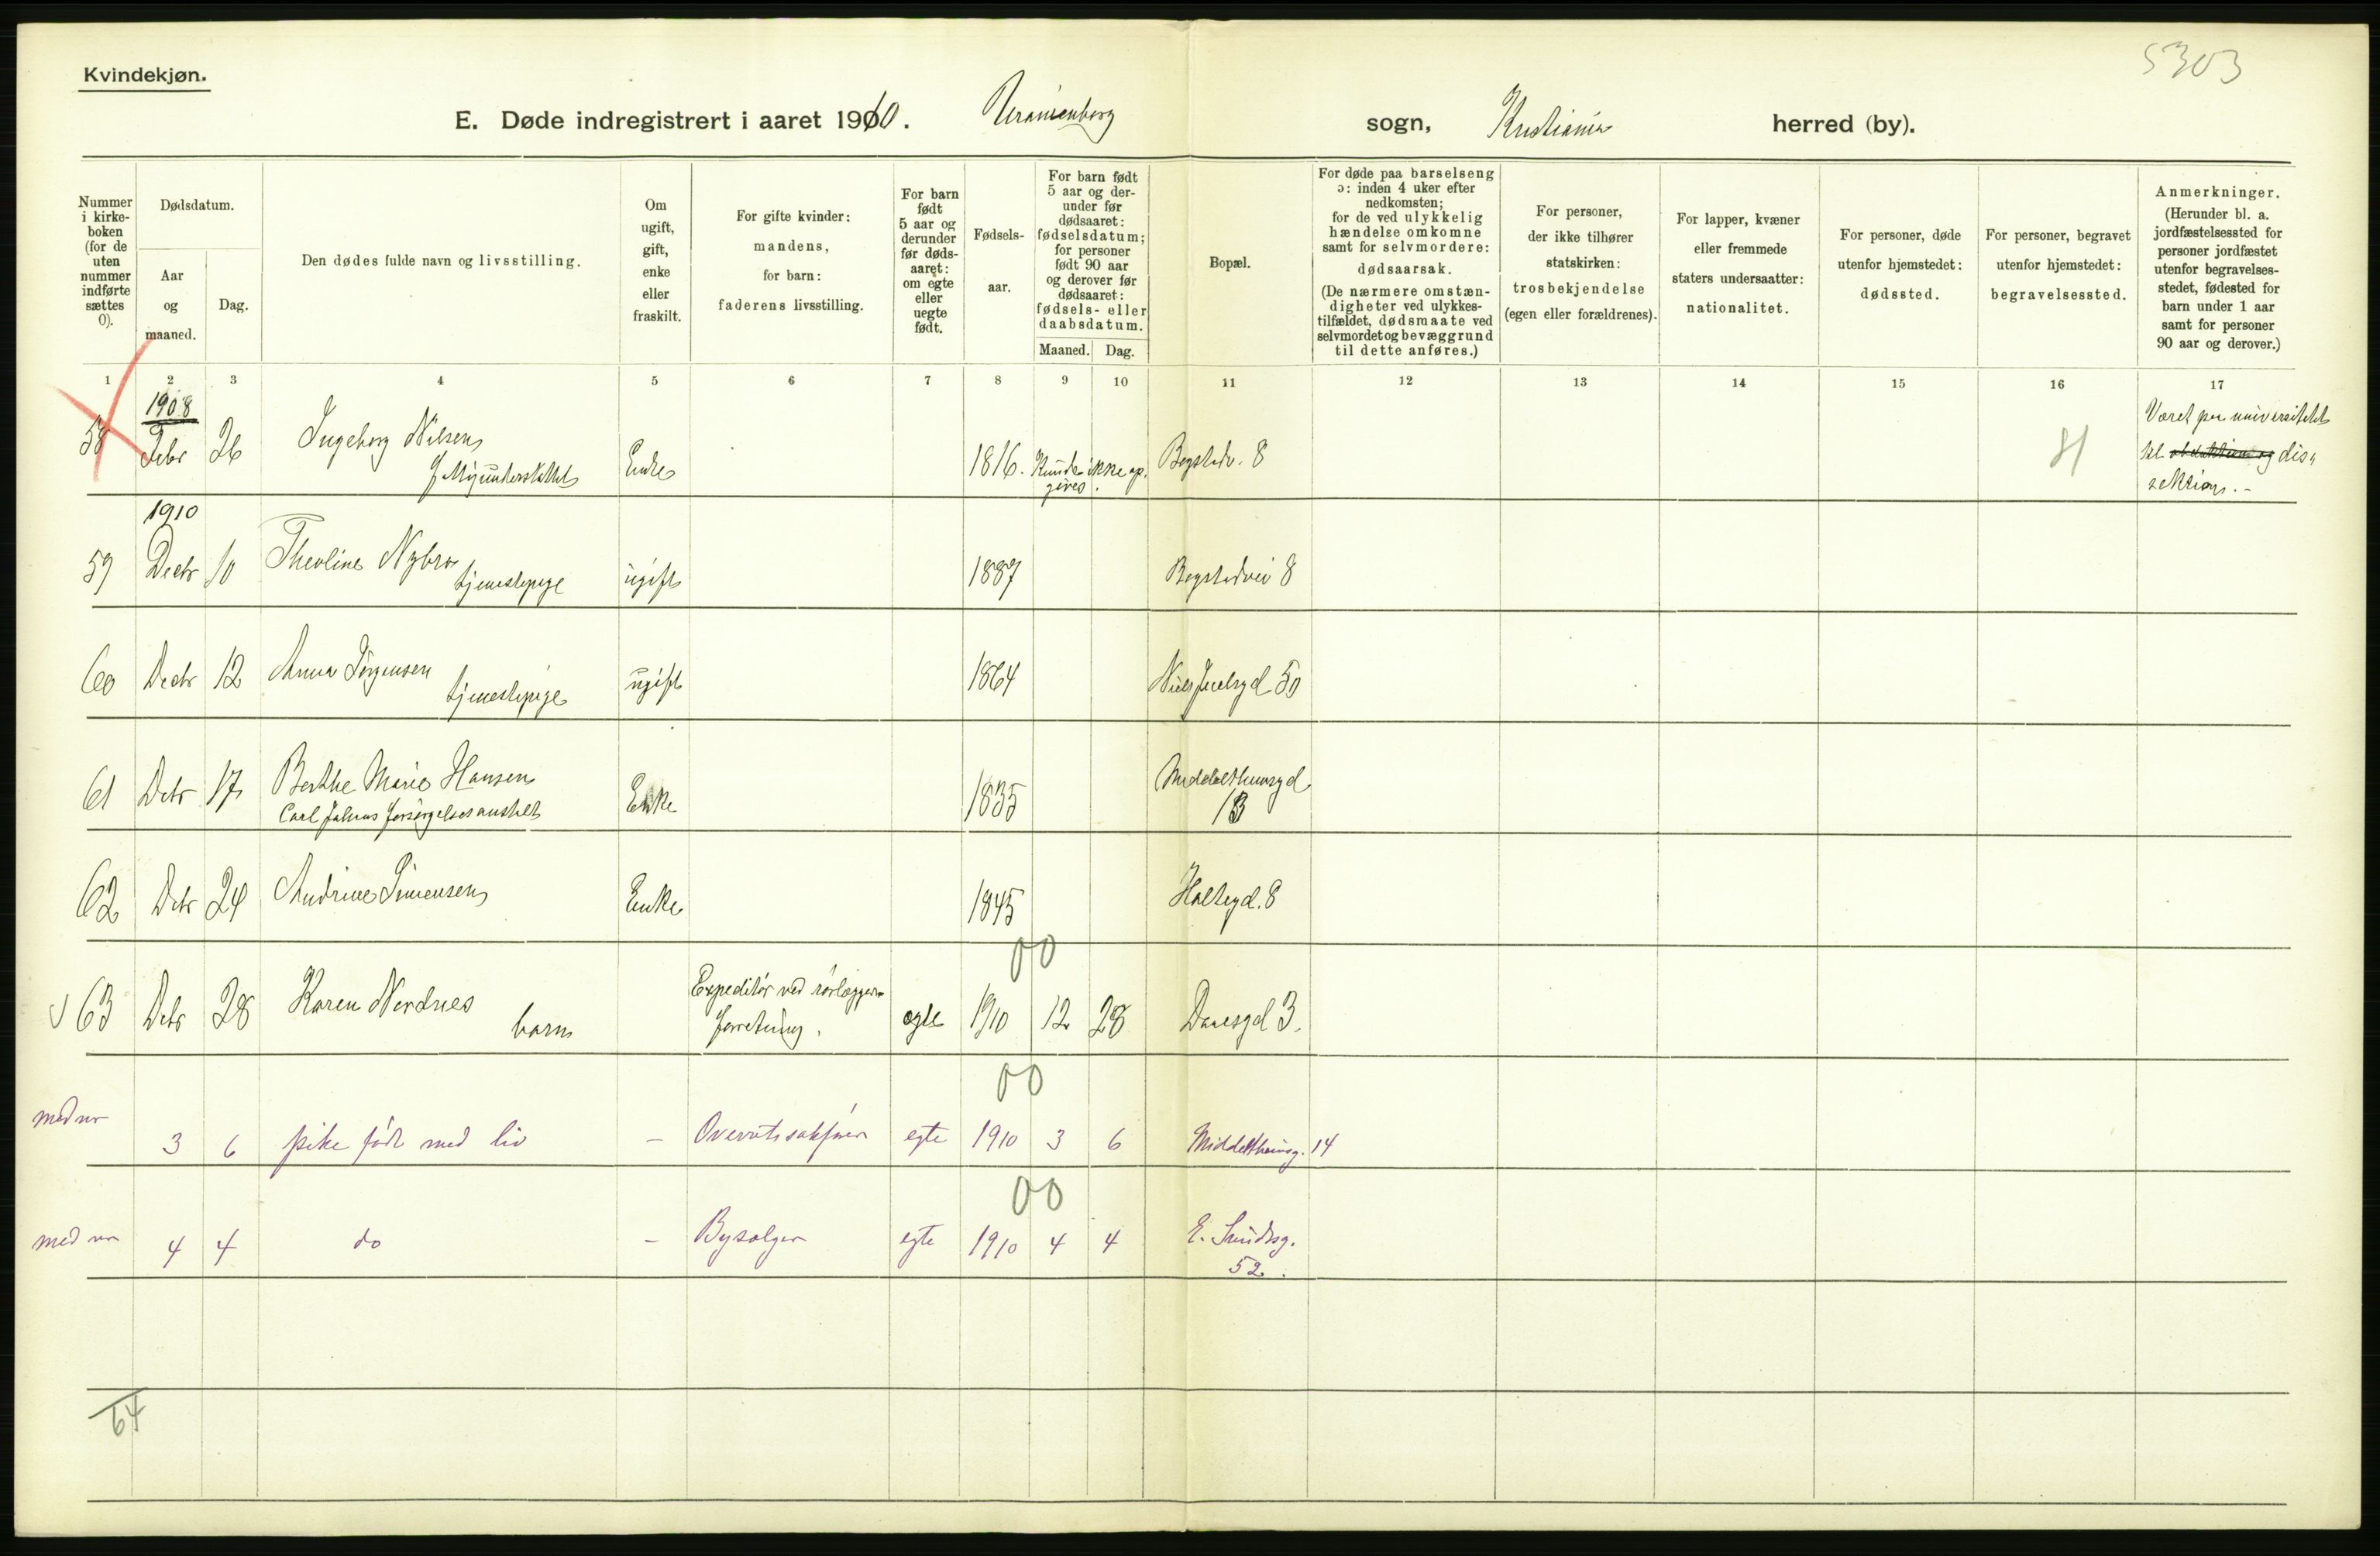 5303
Kvindekjøn.
E. Døde indregistrert i aaret 1910. Uranienborg sogn, Kristiania herred (by).
Nummer i kirke-boken (for de uten nummer indførte sættes 0).
Dødsdatum.
Aar og maaned.
Dag.
Den dødes fulde navn og livsstilling.
Om ugift, gift, enke eller fraskilt.
For gifte kvinder: mandens, for barn: faderens livsstilling.
For barn født 5 aar og derunder før døds-aaret: om egte eller uegte født.
Fødsels-aar.
For barn født 5 aar og der-under før dødsaaret: fødselsdatum; for personer født 90 aar og derover før dødsaaret: fødsels- eller daabsdatum.
Maaned. Dag.
Bopæl.
For døde paa barselseng ɔ: inden 4 uker efter nedkomsten; for de ved ulykkelig hændelse omkomne samt for selvmordere: dødsaarsak. (De nærmere omstæn-digheter ved ulykkes-tilfældet, dødsmaate ved selvmordet og bevæggrund til dette anføres.)
For personer, der ikke tilhører statskirken: trosbekjendelse (egen eller forældrenes).
For lapper, kvæner eller fremmede staters undersaatter: nationalitet.
For personer, døde utenfor hjemstedet: dødssted.
For personer, begravet utenfor hjemstedet: begravelsessted.
Anmerkninger. (Herunder bl. a. jordfæstelsessted for personer jordfæstet utenfor begravelses-stedet, fødested for barn under 1 aar samt for personer 90 aar og derover.)
1 2 3 4 5 6 7 8 9 10 11 12 13 14 15 16 17
1908
58 Febr 26 Ingeborg Nilsen Enke 1816. Kunde ikke op-gives. Bogstadv. 8 Været paa universitetet
til og dis-
sektion. -
1910
59 Decbr 10 Theoline Nybro tjenestepige ugift 1887 Bogstadvei 8
60 Decbr 12 Anna Jørgensen tjenestepige ugift 1864 Niels Juelsgd 50
61 Debr 17 Berthe Marie Hansen Enke 1835 Middelthunsgd
Carl Johans forsørgelsesanstalt 13
62 Debr 24 Andrine Simensen Enke 1845 Holtegd. 8
00
63 Debr 28 Karen Nordnes barn Expeditør ved rørlægger-
forretning. egte 1910 12 28 Daaesgd 3.
00
med nr 3 6 pike født med liv - Overretssakfører egte 1910 3 6 Middelthunsg. 14
00
med nr 4 4 do - Bysælger egte 1910 4 4 E. Sundtsg.
52.
64